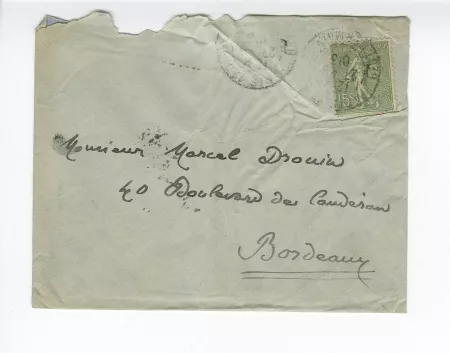 Monsieur Marcel Drouin
40 Boulevard de Caudéran
Bordeaux
15